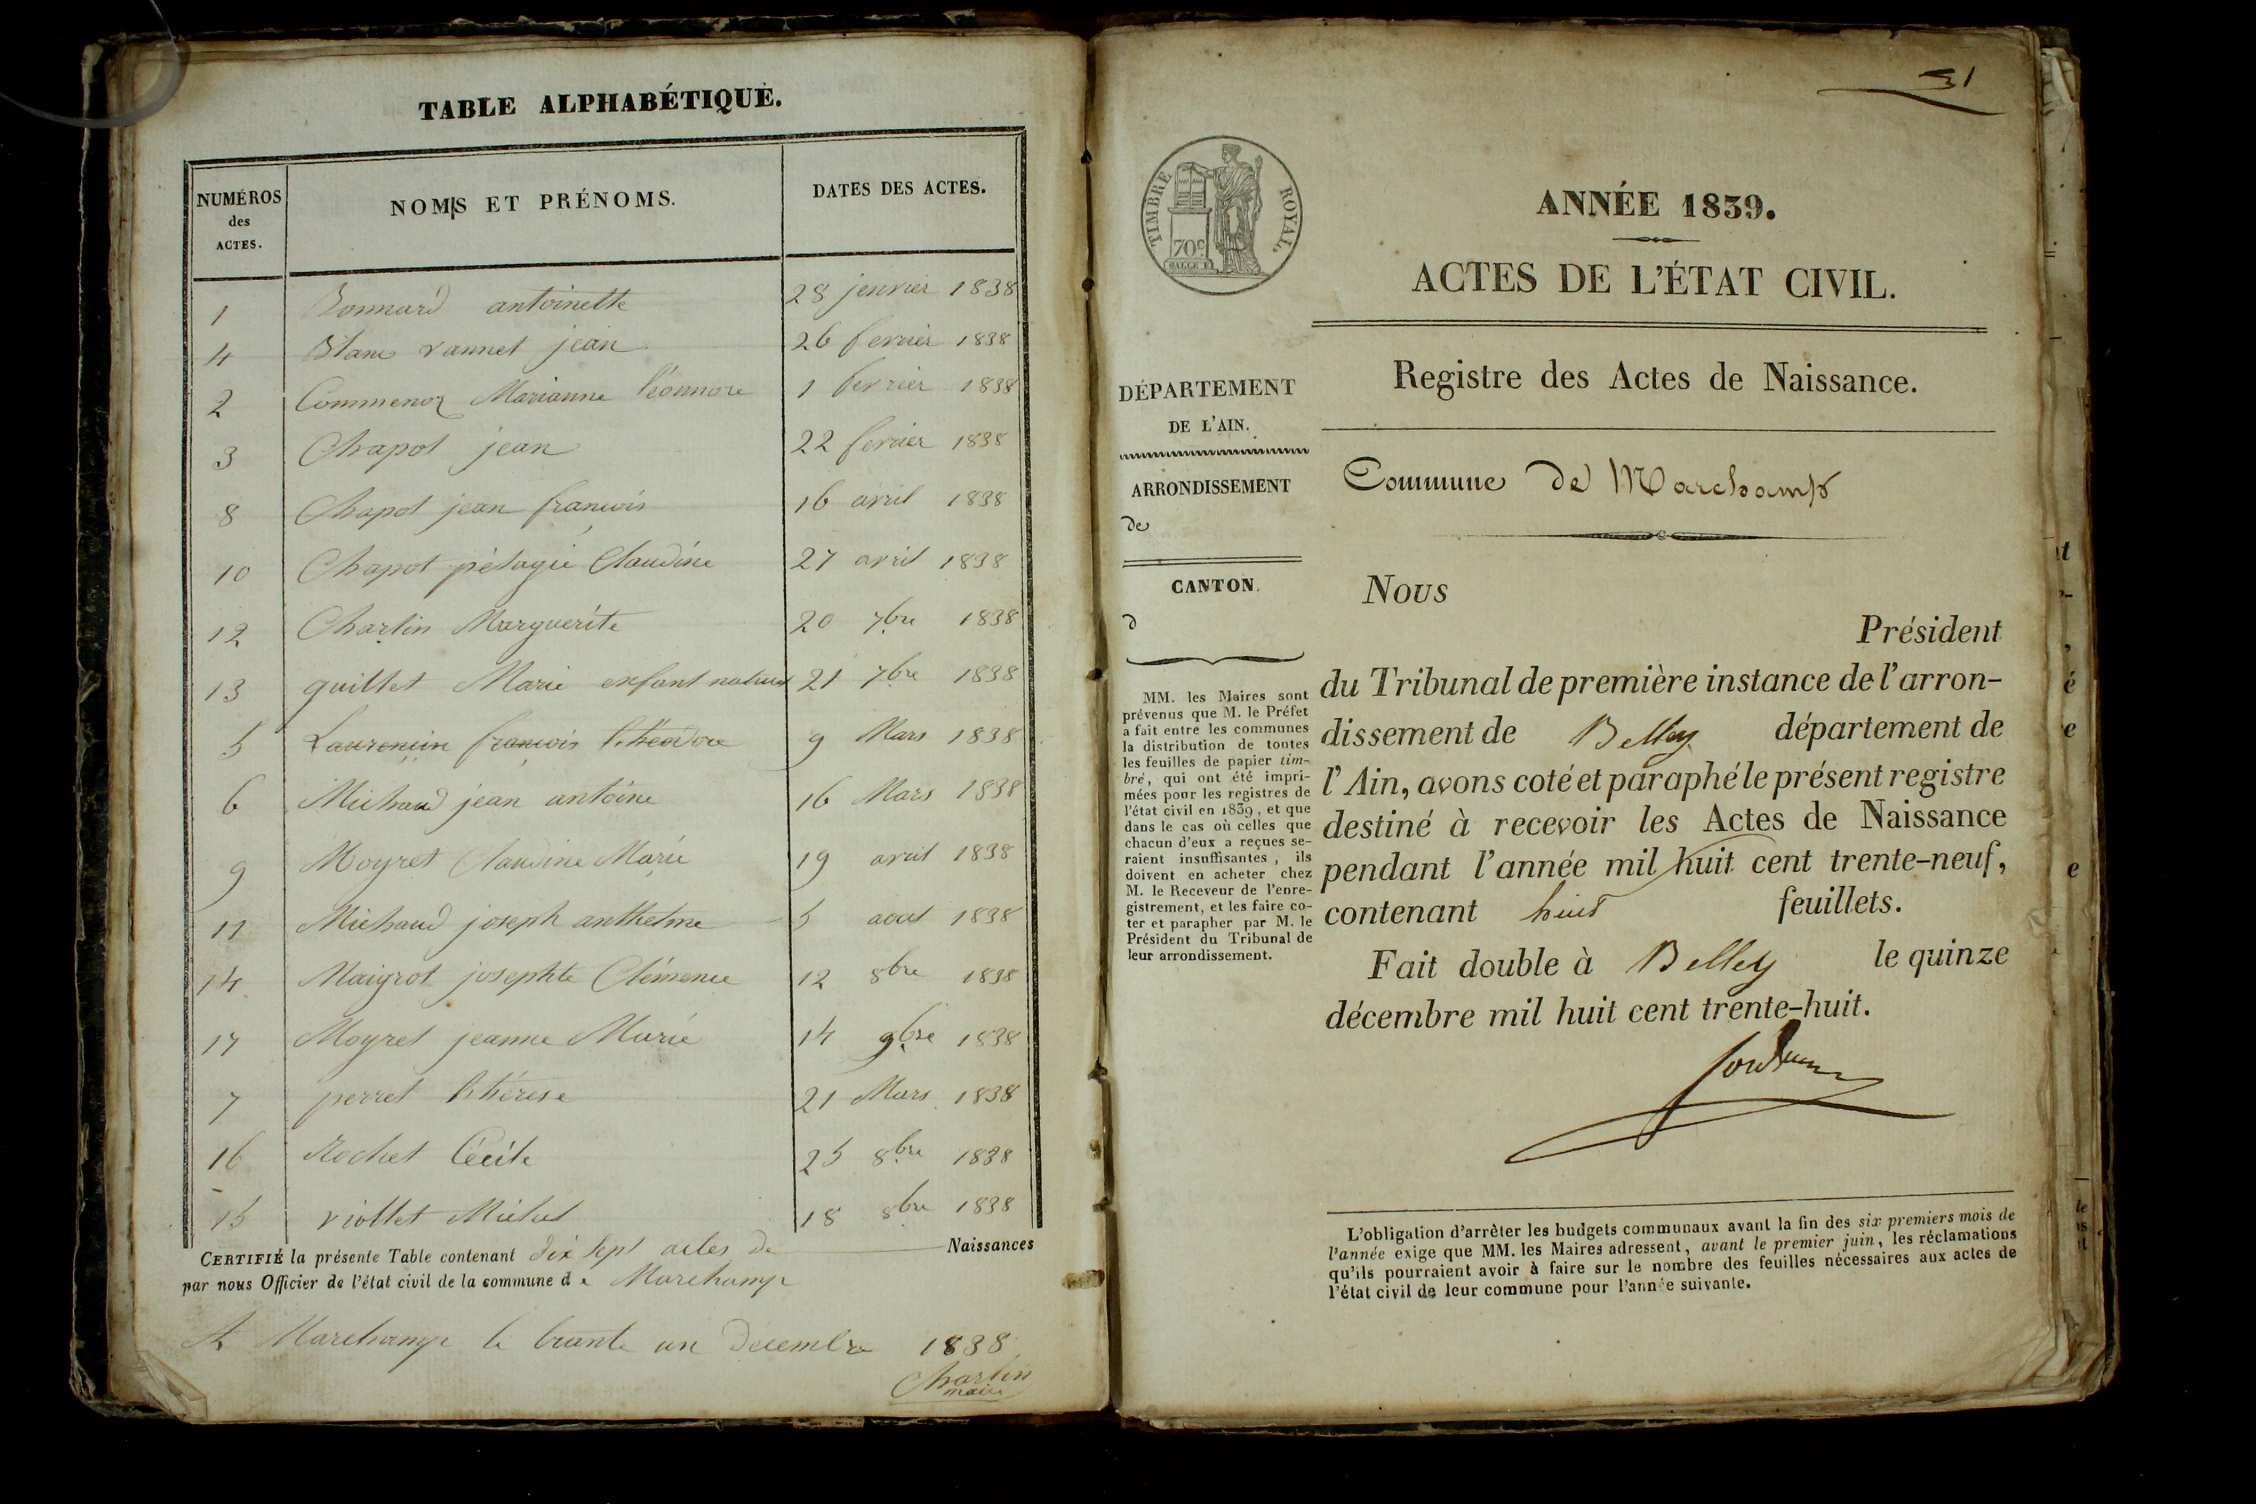 TABLE ALPHABÉTIQUE.
NUMÉROS des ACTES. NOMS ET PRÉNOMS. DATES DES ACTES.
1 Bonnard antoinette 28 jenvier 1838
4 Blanc vannet jean 26 fevrier 1838
2 Marianne 1 fevrier 1838
3 Chapot jean 22 fevrier 1838
8 Chapot jean françois 16 avril 1838
10 Chapot pélagie Claudine 27 avril 1838
12 Charlin Marguerite 20 7bre 1838
13 quillet Marie enfant naturel 21 7bre 1838
5 Laurencin françois théodore 9 Mars 1838
6 Michaud jean antoine 16 Mars 1838
9 Moyret Claudine Marie 19 avril 1838
11 Michaud joseph anthelme 5 aout 1838
14 Maigrot josephte Clémence 12 8bre 1838
17 Moyret jeanne Marie 14 9bre 1838
7 perret thérese 21 Mars 1838
16 Rochet Cécile 25 8bre 1838
15 viollet Michel 18 8bre 1838
CERTIFIÉ la présente Table contenant dix sept actes de Naissances
par nous Officier de l'état civil de la commune de Marchamp
A Marchamp le trante un decembre 1838
Charlin
maire
31
TIMBRE ROYAL.
70c
ANNÉE 1839.
ACTES DE L'ÉTAT CIVIL.
Registre des Actes de Naissance.
DÉPARTEMENT
DE L'AIN.
ARRONDISSEMENT
de
CANTON.
d
MM. les Maires sont
prévenus que M. le Préfet
a fait entre les communes
la distribution de toutes
les feuilles de papier tim-
bré, qui ont été impri-
mées pour les registres de
l'état civil en 1839, et que
dans le cas où celles que
chacun d'eux a reçues se-
raient insuffisantes, ils
doivent en acheter chez
M. le Receveur de l'enre-
gistrement, et les faire co-
ter et parapher par M. le
Président du Tribunal de
leur arrondissement.
Commune de Marchamp
Nous
Président
du Tribunal de première instance de l'arron-
dissement de Belley département de
l'Ain, avons coté et paraphé le présent registre
destiné à recevoir les Actes de Naissance
pendant l'année mil huit cent trente-neuf,
contenant huit feuillets.
Fait double à Belley le quinze
décembre mil huit cent trente-huit.
L'obligation d'arrêter les budgets communaux avant la fin des six premiers mois de
l'année exige que MM. les Maires adressent, avant le premier juin, les réclamations
qu'ils pourraient avoir à faire sur le nombre des feuilles nécessaires aux actes de
l'état civil de leur commune pour l'année suivante.